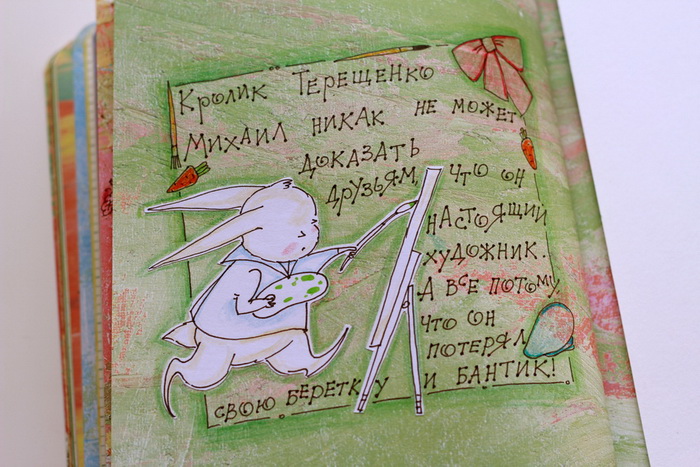 Кролик Терещенко
Михаил никак не может
доказать
друзьям, что он
настоящий
художник.
А все потому,
что он
потерял
свою беретку и бантик!